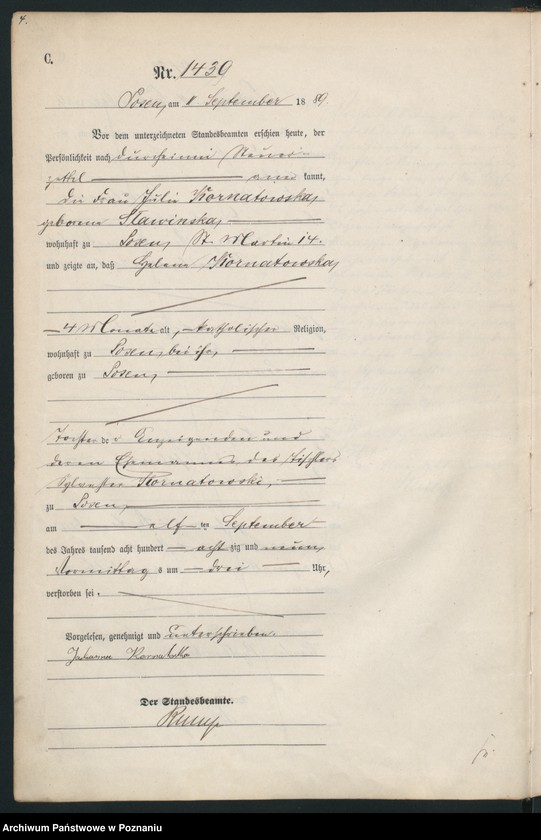 4.
C.
Nr. 1439
Posen, am 11 September 1889.
Vor dem unterzeichneten Standesbeamten erschien heute, der
Persönlichkeit nach
kannt,
die Frau Julie Kornatowska,
geborene Sławinska,
wohnhaft zu Posen, St. Martin 14.
und zeigte an, daß Helene Kornatowska,
4 Monate alt, katholischer Religion,
wohnhaft zu Posen, bei ihr,
geboren zu Posen,
Tochter der Anzeigenden und
deren Ehemannes, des Tischlers
Sylvester Kornatowski,
zu Posen,
am elf ten September
des Jahres tausend acht hundert acht zig und neun,
Vormittag s um drei Uhr,
verstorben sei.
Vorgelesen, genehmigt und unterschrieben.
Der Standesbeamte.
Archiwum Państwowe w Poznaniu